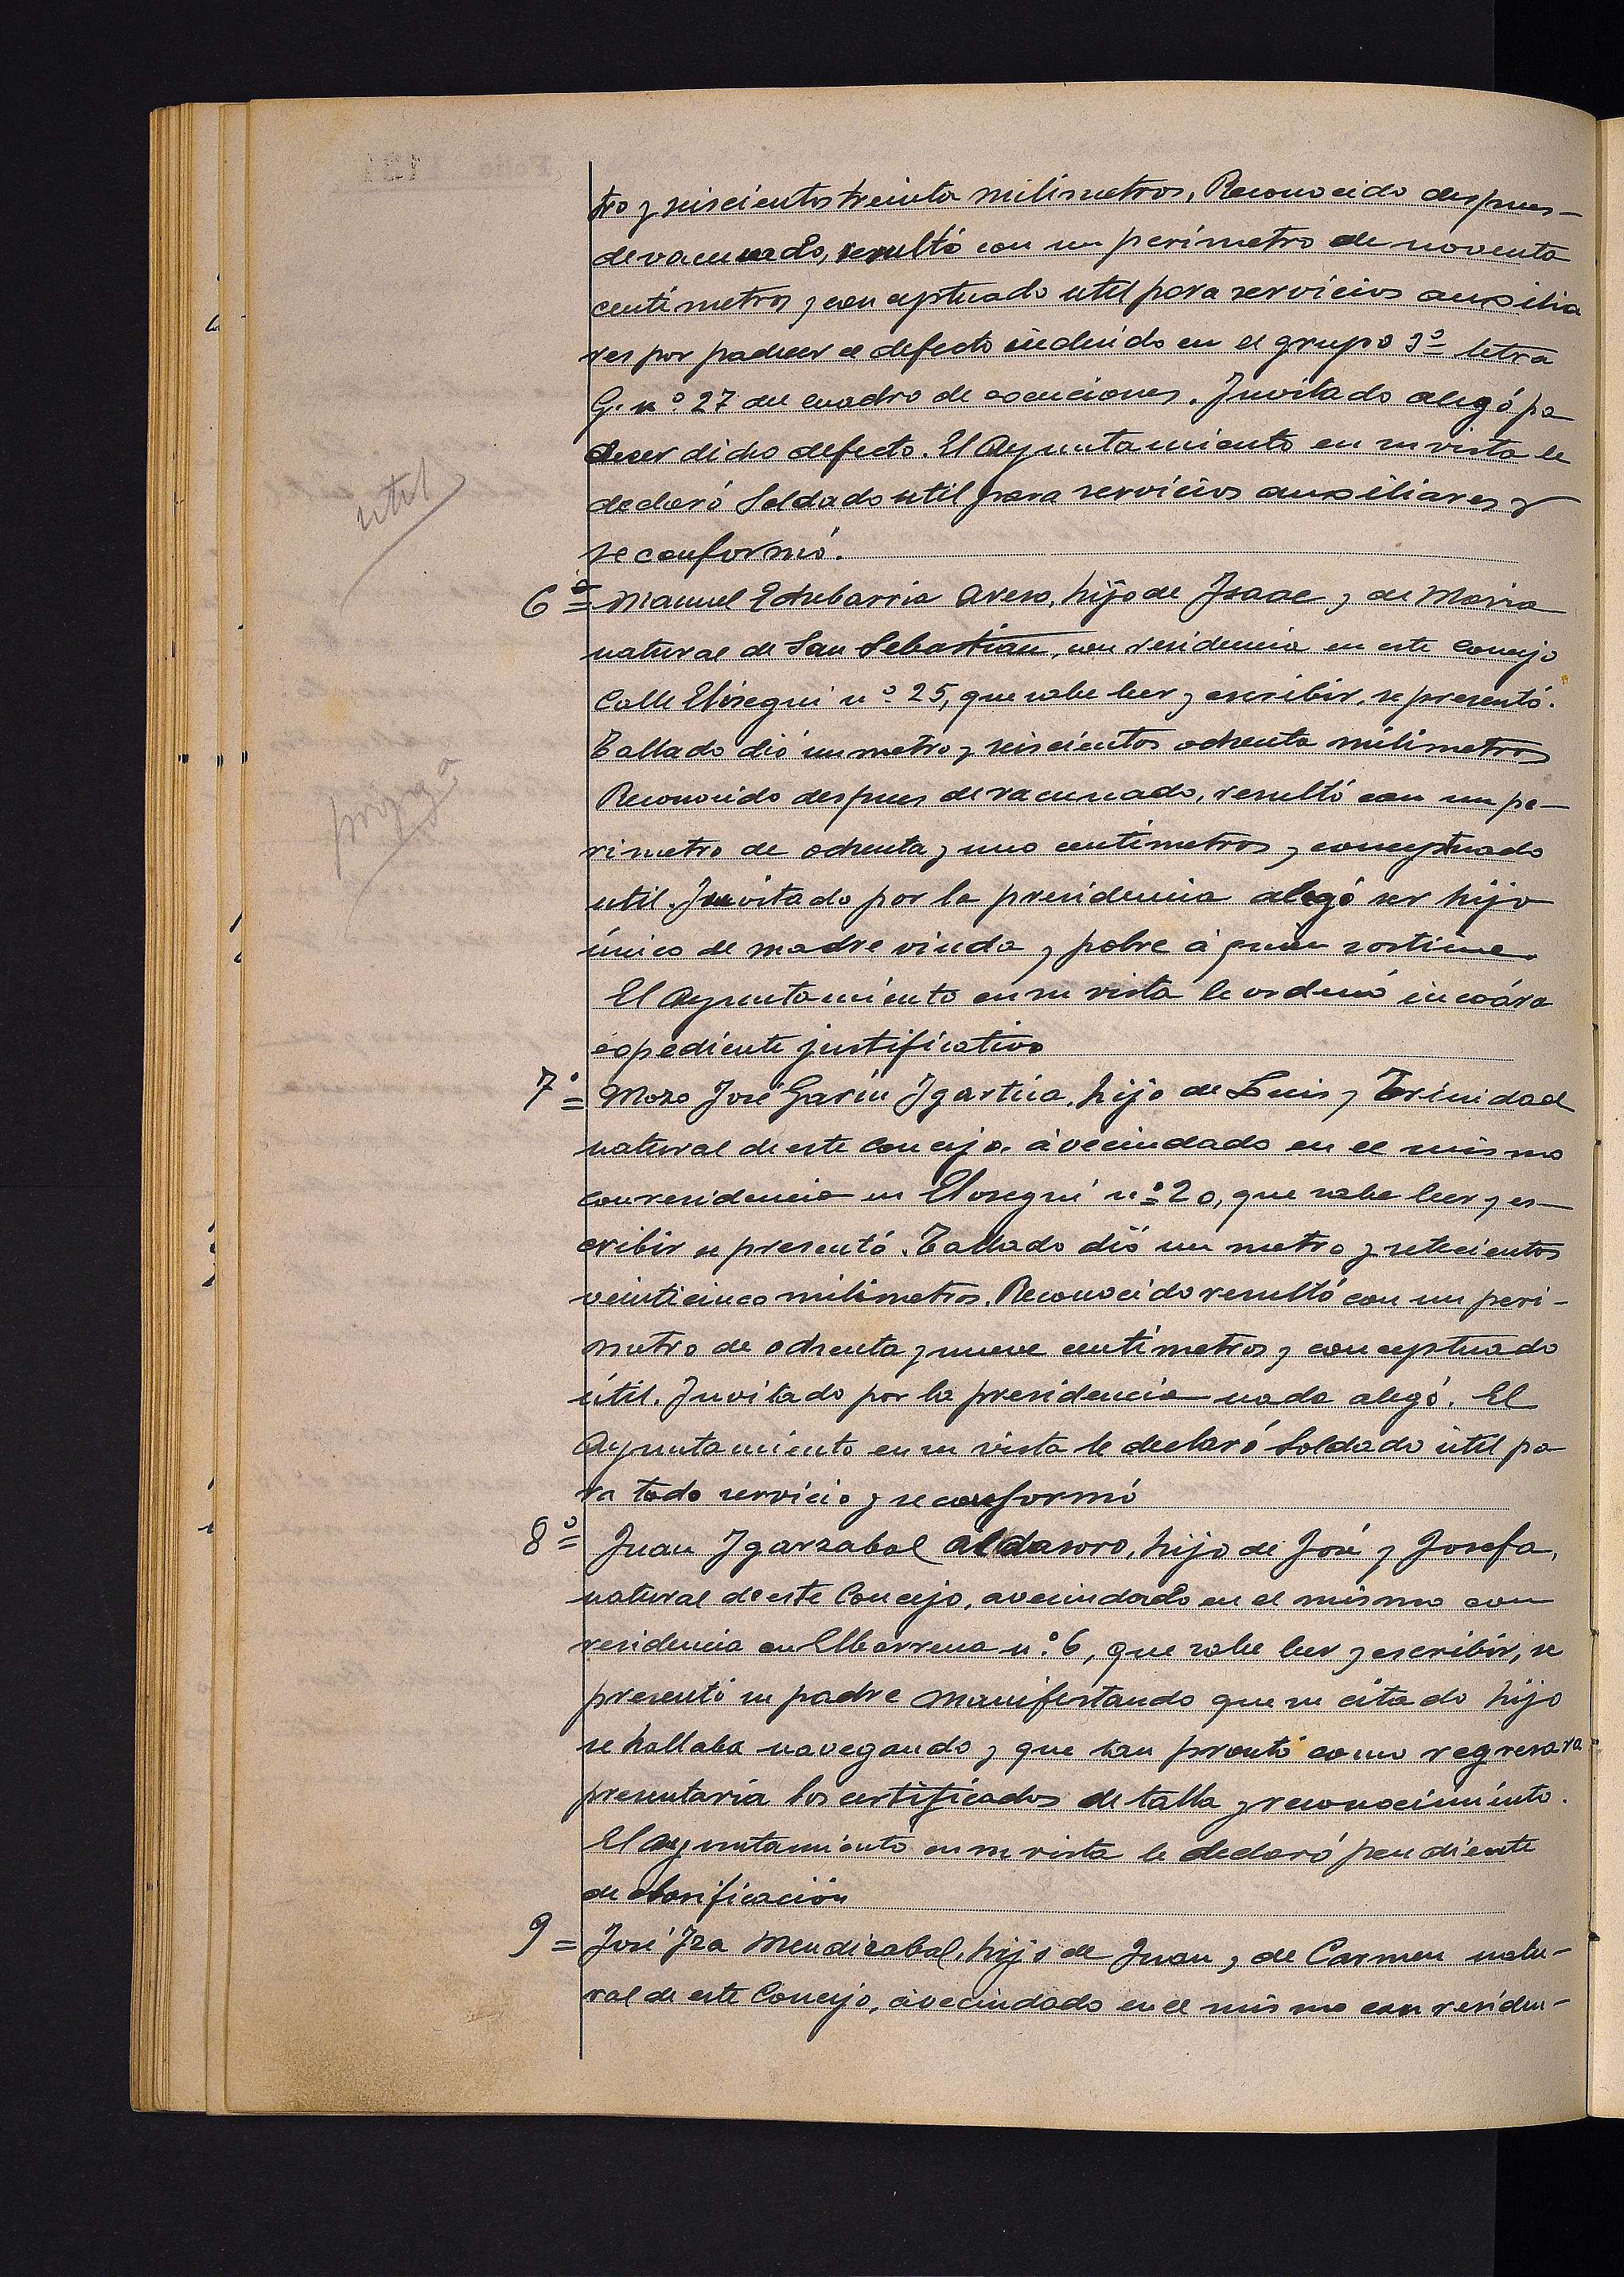 tro y seiscientos treinta milimetros, Reconocido despues-
de vacunado, resultó con un perímetro de noventa
centimetros y conceptuado util para servicios auxilia
res por padecer el defecto incluido en el grupo 3º letra
G. nº 27 del cuadro de exenciones. Invitado alegó pa
decer dicho defecto. El Ayuntamiento en su vista le
declaró Soldado util para servicios auxiliares y
se conformó.
util
6º= Manuel Echebarria Avero, hijo de Isaac y de Maria
natural de San Sebastian, con residencia en este Concejo
Calle Elosegui nº 25, que sabe leer y escribir, se presentó.
Tallado dió un metro y seiscientos ochenta milimetros
Reconocido despues de vacunado, resultó con un pe-
rimetro de ochenta y uno centimetros y conceptuado
util. Invitado por la presidencia alegó ser hijo
único de madre viuda y pobre á quien sostiene.
El Ayuntamiento en su vista le ordenó incoára
expediente justificativo
7º= Mozo José Garin Igartúa, hijo de Luis y Trinidad
natural de este Concejo. ávecindado en el mismo
con residencia en Elosegui nº 20, que sabe leer y es-
cribir se presentó. Tallado dió un metro y setecientos
veinticinco milimetros. Reconocido resultó con un peri-
metro de ochenta y nueve centímetros y conceptuado
útil. Invitado por la presidencia nada alegó. El
Ayuntamiento en su vista le declaró Soldado útil pa-
ra todo servicio y se conformó
8º= Juan Igarzabal Aldasoro, hijo de José y Josefa,
natural de este Concejo, avecindado en el mismo con
residencia en Elbarrena nº 6, que sabe leer y escribir, se
presentó su padre manifestando que su citado hijo
se hallaba navegando y que tan prontó como regresara
presentaria los certificados de talla y reconocimiento.
El Ayuntamiento en su vista le declaró pendiente
de clasificación
9= José Iza Mendizabal, hijo de Juan y de Carmen natu-
ral de este Concejo, ávecindado en el mismo con residen-